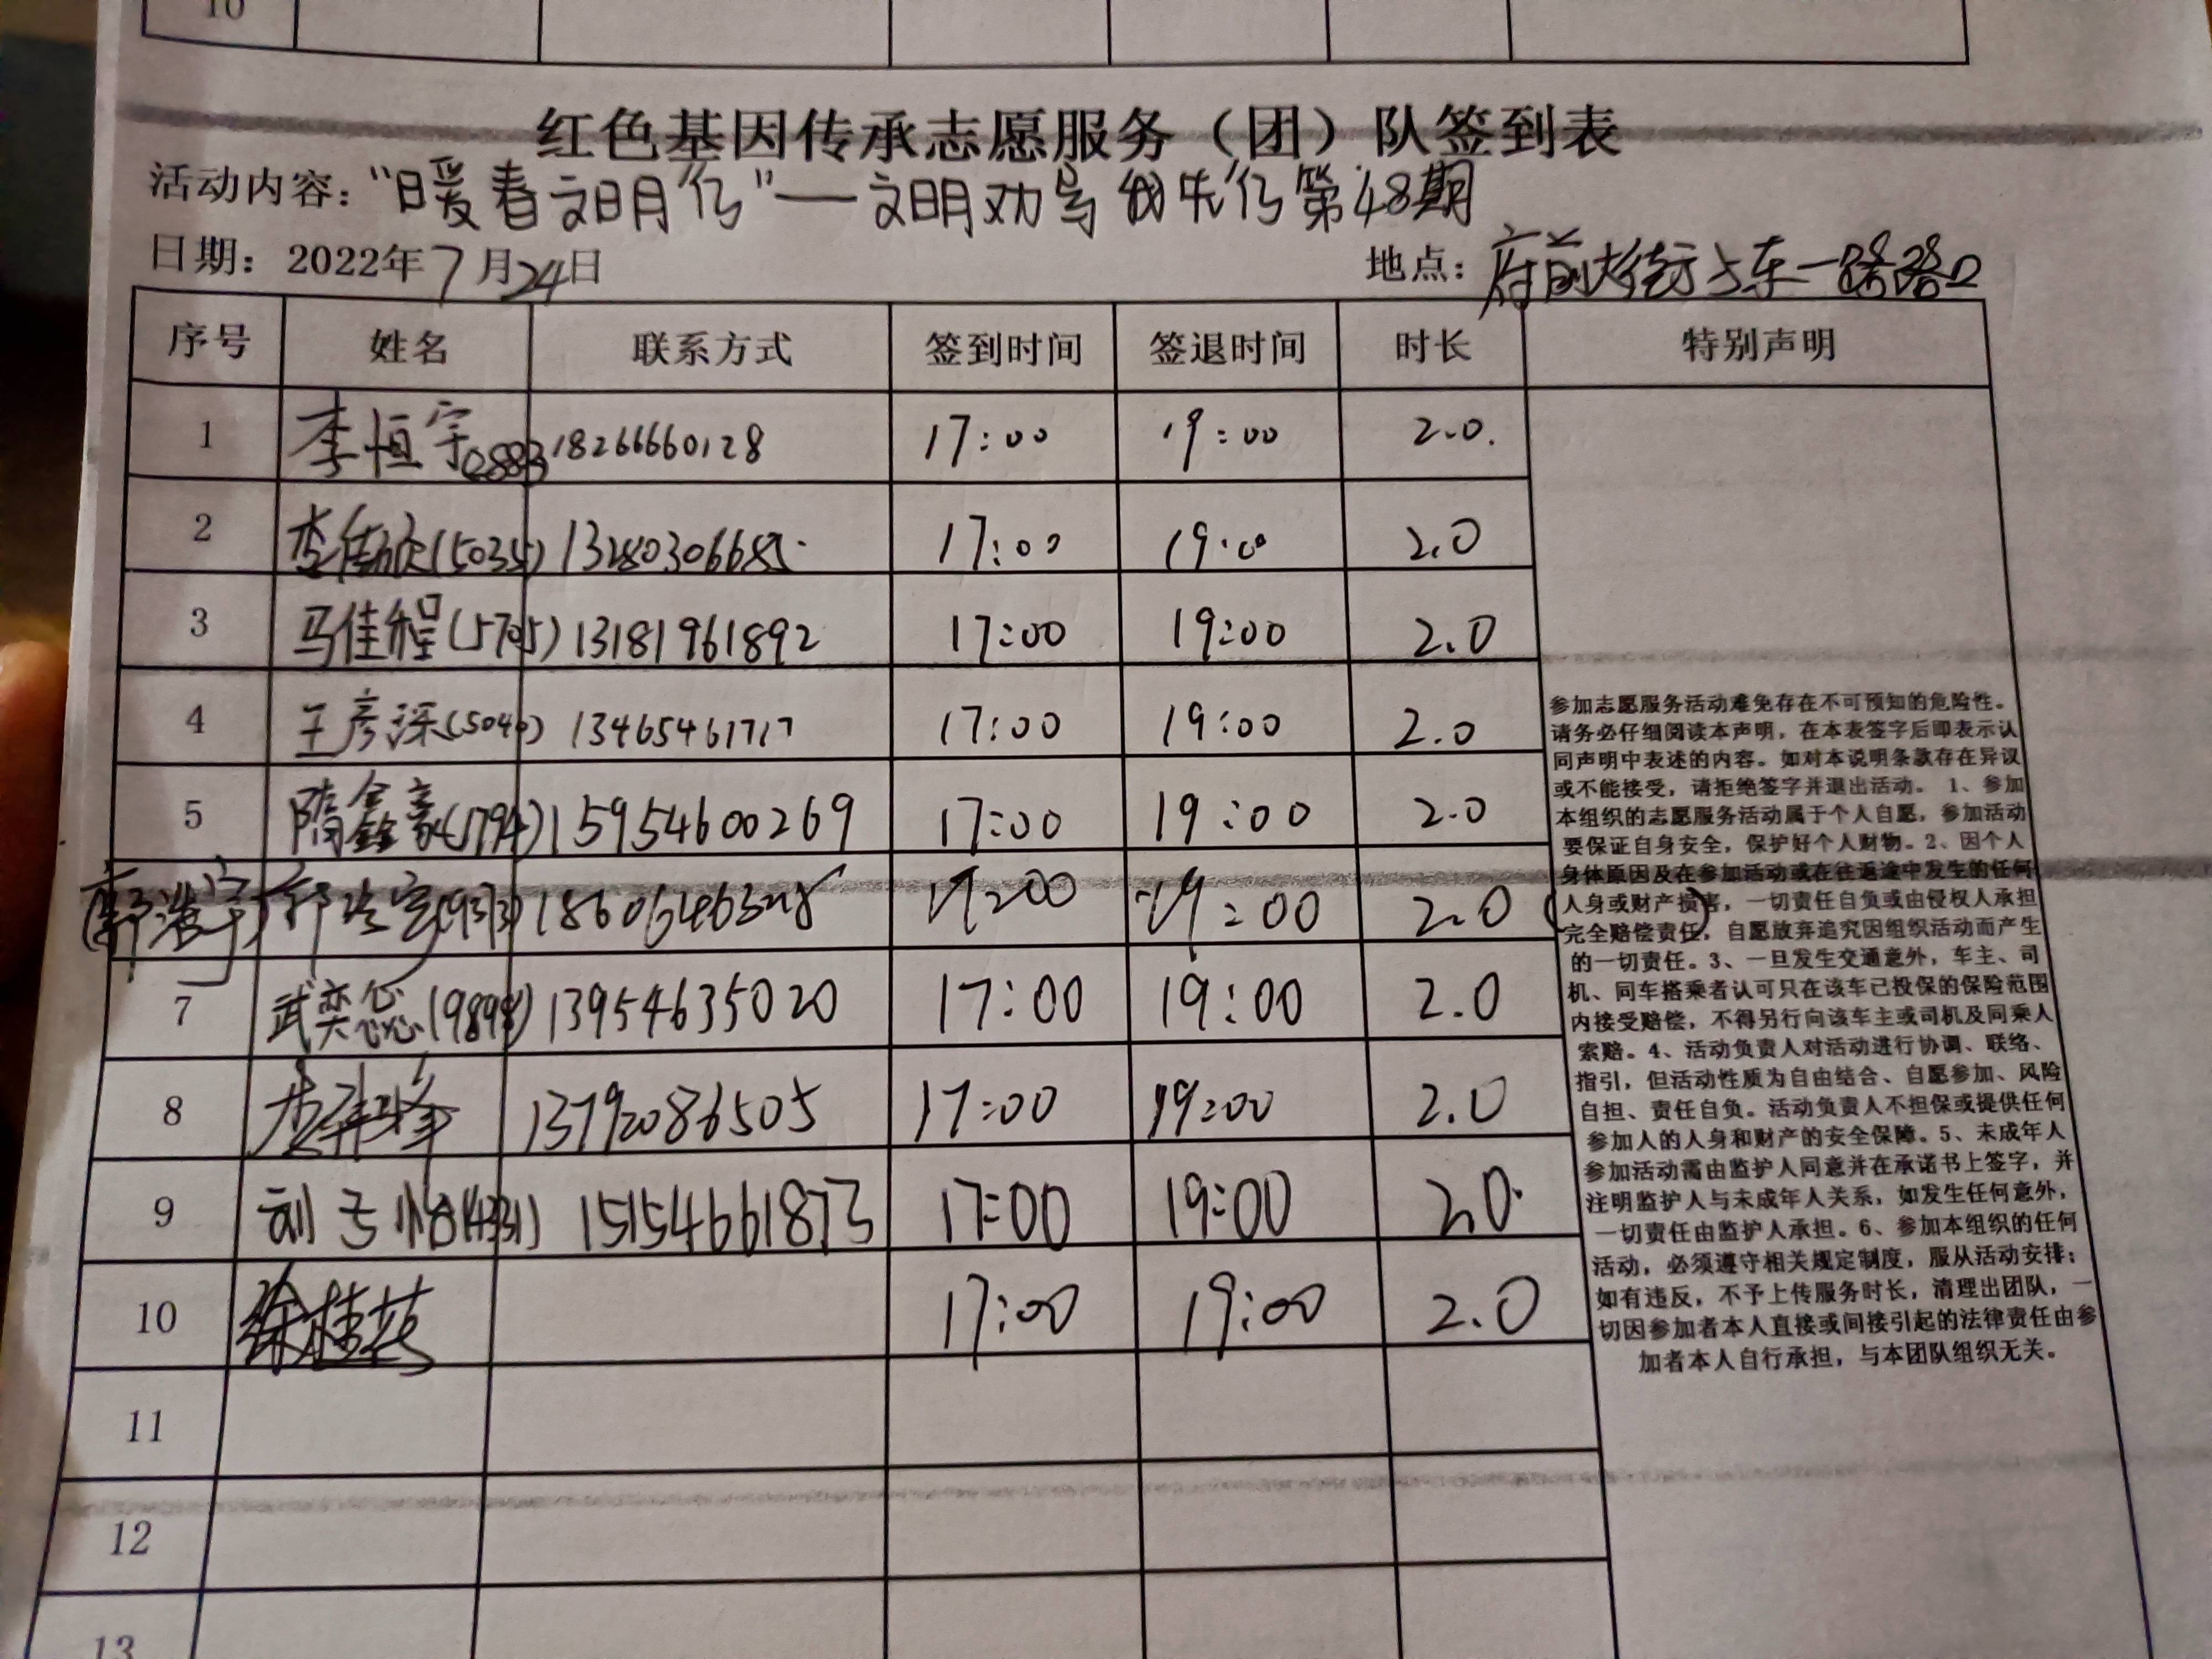 10
红色基因传承志愿服务（团）队签到表
活动内容：“暖春文明行”——文明劝导我先行第48期
日期：2022年7月24日
地点：府前大街与东一路路口
序号 姓名 联系方式 签到时间 签退时间 时长 特别声明
1 李恒宇0883 18266660128 17:00 19:00 2.0.
2 (5035) 17:00 19:00 2.0
3 马佳程(5705) 13181961892 17:00 19:00 2.0
4 王彦深(5040) 13465461717 17:00 19:00 2.0
5 隋鑫豪(5794) 15954600269 17:00 19:00 2.0
(郭浩宇) 郭浩宇(9373) 17:00 19:00 2.0 ( )
7 武奕 (9898) 13954635020 17:00 19:00 2.0
8 13792086505 17:00 19:00 2.0
9 刘子怡(4931) 15154661873 17:00 19:00 2.0
10 徐桂芬 17:00 19:00 2.0
11
12
13
参加志愿服务活动难免存在不可预知的危险性。
请务必仔细阅读本声明，在本表签字后即表示认
同声明中表述的内容。如对本说明条款存在异议
或不能接受，请拒绝签字并退出活动。 1、参加
本组织的志愿服务活动属于个人自愿，参加活动
要保证自身安全，保护好个人财物。2、因个人
身体原因及在参加活动或在往返途中发生的任何
人身或财产损害，一切责任自负或由侵权人承担
完全赔偿责任，自愿放弃追究因组织活动而产生
的一切责任。3、一旦发生交通意外，车主、司
机、同车搭乘者认可只在该车已投保的保险范围
内接受赔偿，不得另行向该车主或司机及同乘人
索赔。4、活动负责人对活动进行协调、联络、
指引，但活动性质为自由结合、自愿参加、风险
自担、责任自负。活动负责人不担保或提供任何
参加人的人身和财产的安全保障。5、未成年人
参加活动需由监护人同意并在承诺书上签字，并
注明监护人与未成年人关系，如发生任何意外，
一切责任由监护人承担。6、参加本组织的任何
活动，必须遵守相关规定制度，服从活动安排；
如有违反，不予上传服务时长，清理出团队，一
切因参加者本人直接或间接引起的法律责任由参
加者本人自行承担，与本团队组织无关。